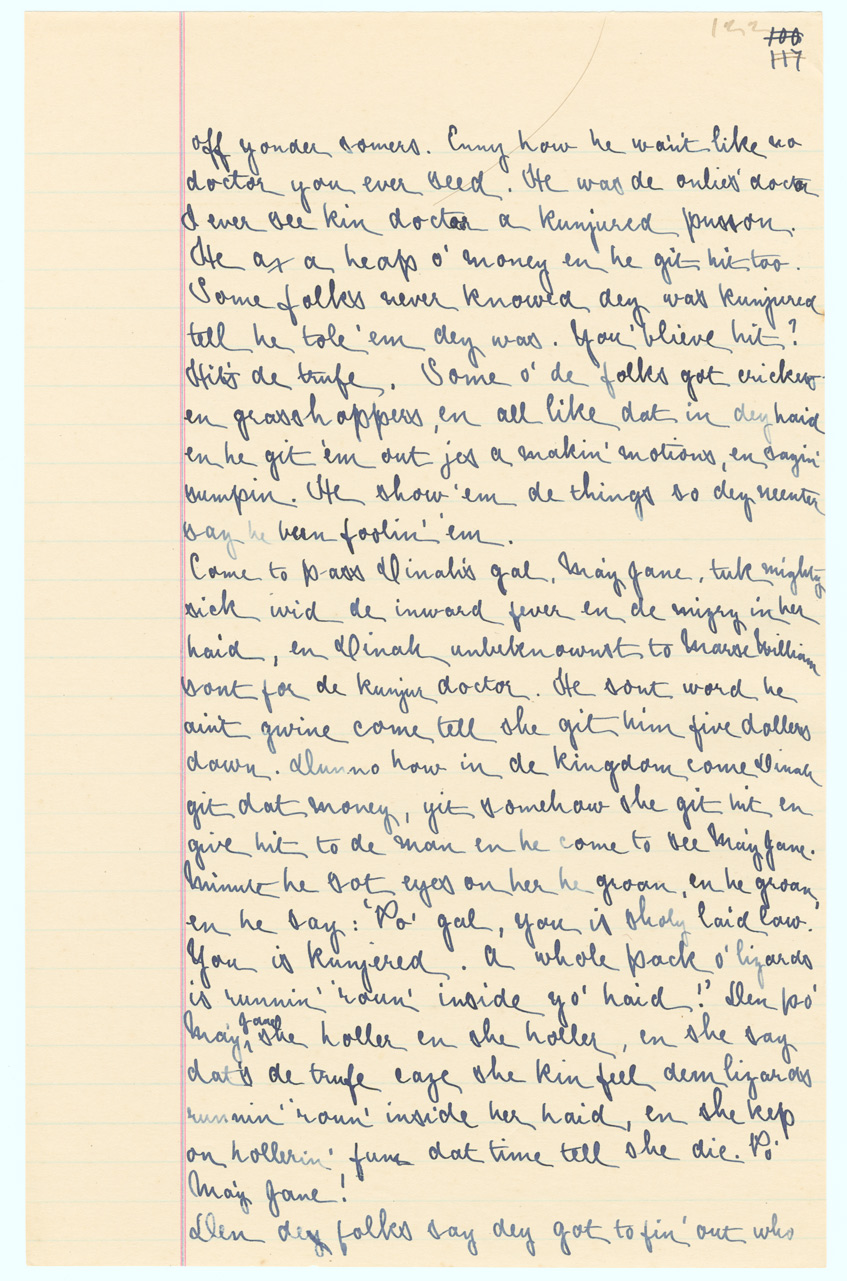 122
100
117
off yonder somers. Enny how he wan't like no
doctor you ever seed. He was de onlies' doctor
I ever see kin doctor a kunjured pusson.
He ax a heap o' money en he git hit too.
Some folks never knowed dey was kunjured
tell he tole 'em dey was. You 'blieve hit?
Hit's de trufe. Some o' de folks got crickets
en grasshoppers, en all like dat in dey haid
en he git 'em out jes a makin' motions, en sayin'
sumpin. He show 'em de things so dey neenter
say he been foolin' 'em.
Come to pass Dinah's gal, May Jane, tuk mighty
sick wid de inward fever en de mizry in her
haid, en Dinah unbeknownst to Marse William
sont for de kunjur doctor. He sont word he
ain't gwine come tell she git him five dollers
down. Dunno how in de kingdom come Dinah
git dat money, yit somehow she git hit en
give hit to de man en he come to see May Jane.
Minute he sot eyes on her he groan, en he groan,
en he say: 'Po' gal, you is sholy laid low.
You is kunjered. A whole pack o' lizards
is runnin' 'roun' inside yo' haid!' Den po'
May Jane she holler en she holler, en she say
dat's de trufe caze she kin feel dem lizards
runnin' 'roun' inside her haid, en she kep
on hollerin' fum dat time tell she die. Po'
May Jane!
Den dey folks say dey got to fin' out who